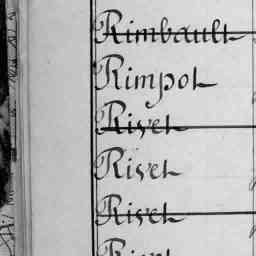 Rimbault
Rimpot
Rivet
Rivet
Rivet